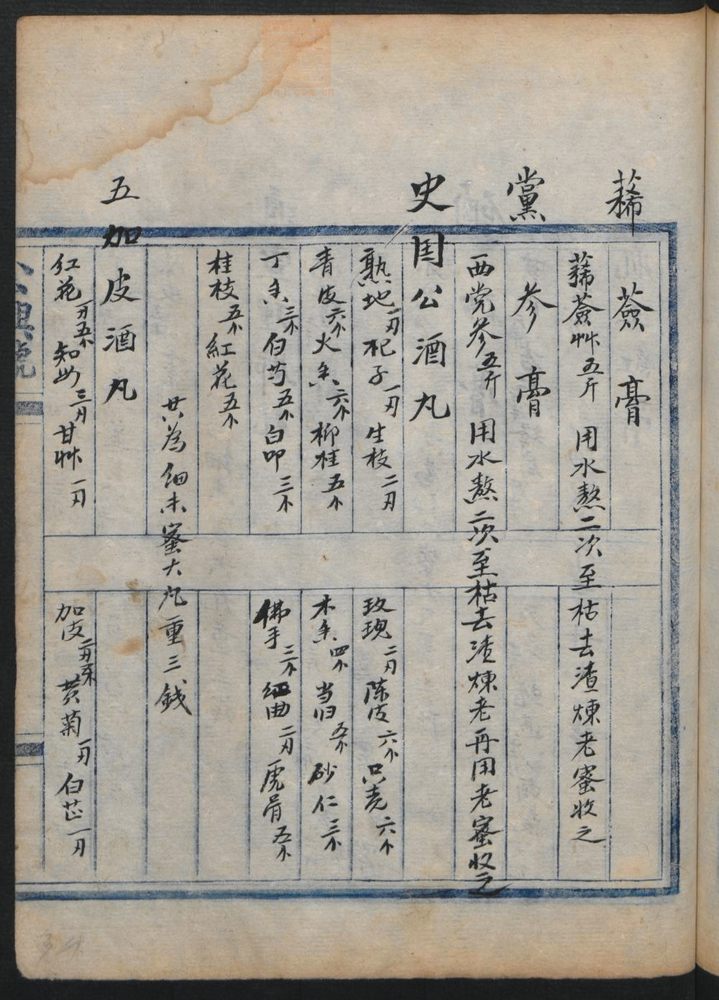 豨薟膏
豨薟艸五斤 用水熬二次至枯去渣煉老蜜收之
黨參膏
西党參五斤 用水熬二次至枯去渣煉老再用老蜜收之
史国公酒丸
熟地一刃 杞子一刃 生枝二刃 玫瑰二刃 陈皮六个 只壳六个
青皮六个 火香六个 柳桂五个 木香四个 当归五个 砂仁三个
丁香三个 白芍五个 白叩三个 佛手三个 红曲二刃 虎骨五个
桂枝五个 紅花五个
共為細末蜜大丸重三錢
五加皮酒丸
红花一刃五个 知母三刃 甘艸一刃 加皮二刃 黄菊一刃 白芷一刃